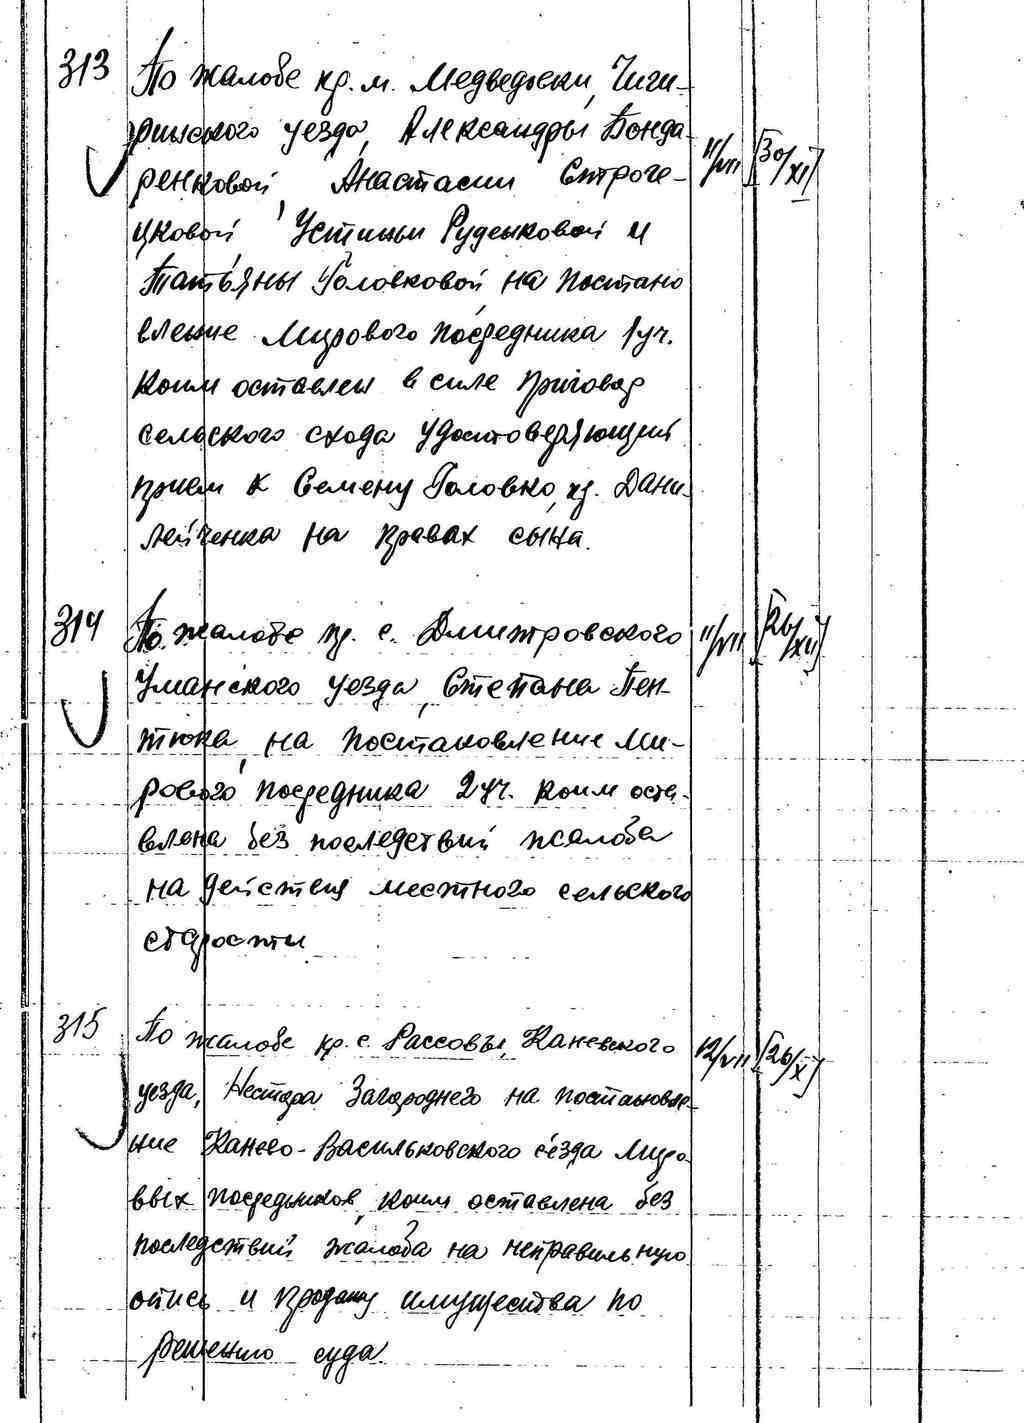 313 По жалобе кр. м. Медведовки, Чиги-
ринского уезда, Александры Бонда-
ренковой, Анастасии Строге-
цковой, Устиньи Руденковой и
Татьяны Головковой, на постано
вление Мирового посредника 1 уч.
коим оставлен в силе приговор
сельского схода удостоверяющий
прием к Семену Головко, кр. Дани-
лейченка на правах сына.
11/VII [30/XI]
314 По жалобе кр. с. Дмитровского
Уманского уезда, Степана Пен-
тюка, на постановление Ми-
рового посредника 2 уч. коим оста-
влена без последствий жалоба
на действия местного сельского
старосты
11/VII [26/XII]
315 По жалобе кр. с. Рассовы, Каневского
уезда, Нестора Загороднего на постановле-
ние Канево-Васильковского съезда Миро
вых посредников, коим оставлена без
последствий жалоба на неправильную
опись и продажу имущества по
решению суда.
12/VII [26/X]